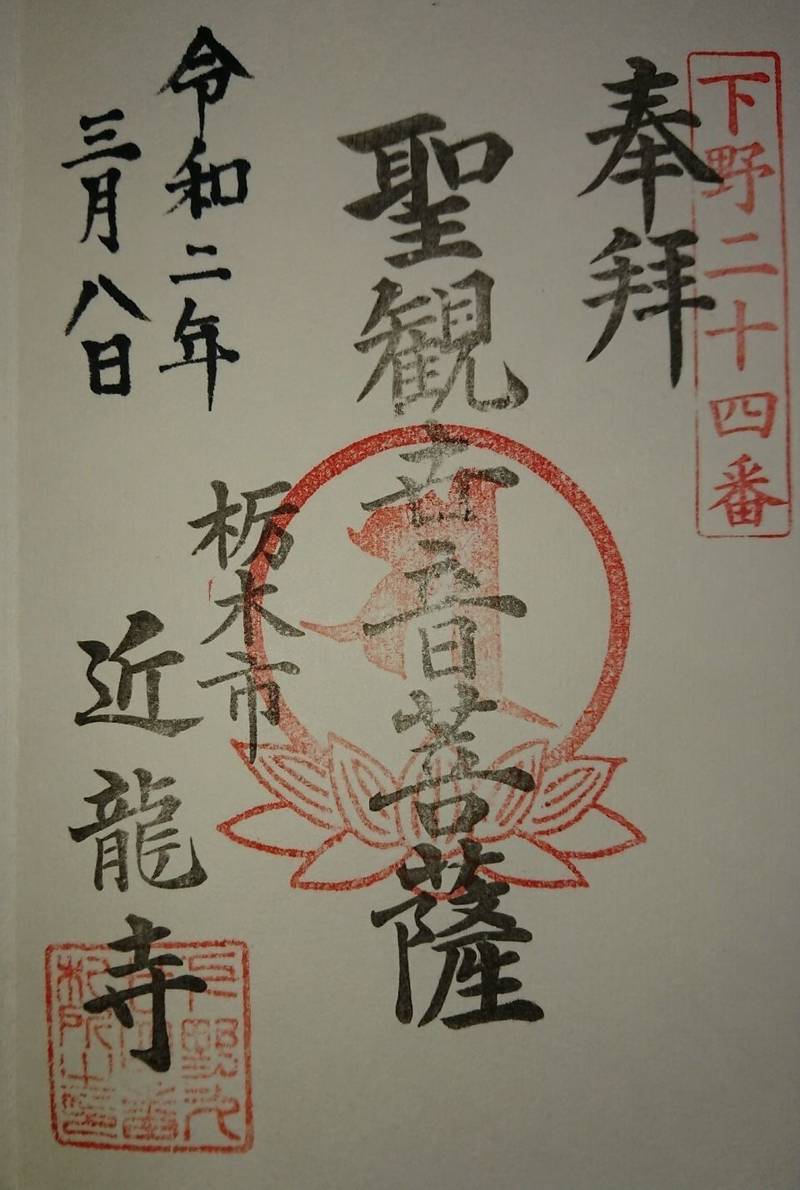 下野二十四番
奉拝
聖観世音菩薩
令和二年
三月八日
栃木市
近龍寺